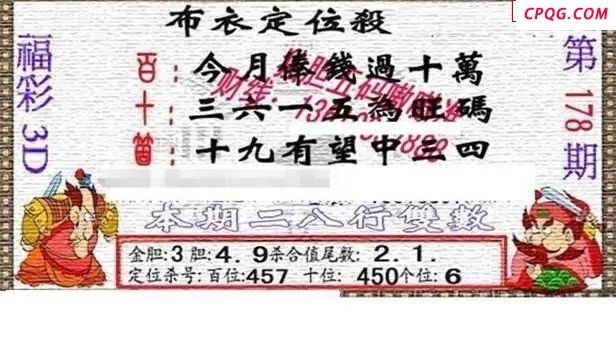 CPQG.COM
布衣定位殺
福彩3D
第178期
百：今月俸錢過十萬
十：三六一五為旺碼
：十九有望中三四
本期二八行雙數
金胆:3胆:4.9杀合值尾数:2.1.
定位杀号:百位:457 十位:450个位:6